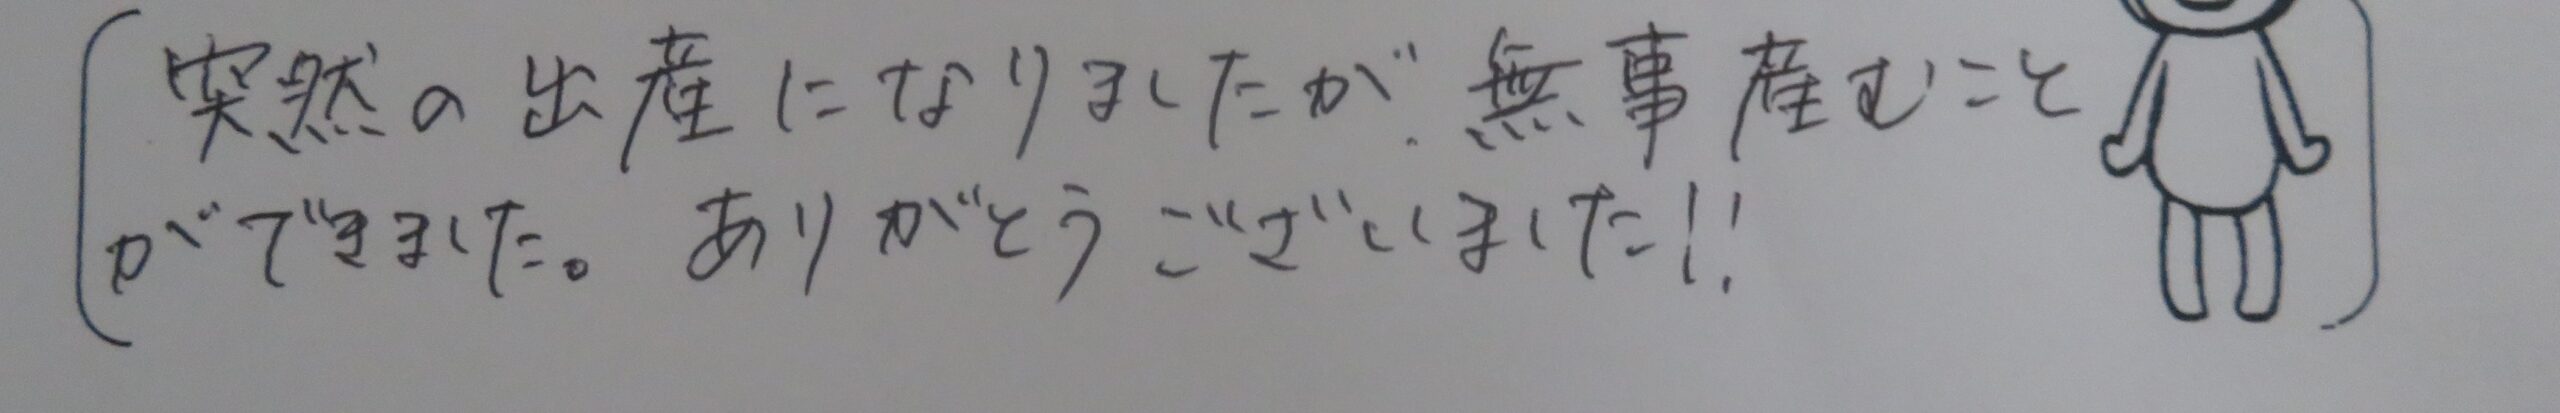 突然の出産になりましたが、無事産むこと
ができました。ありがとうございました!!